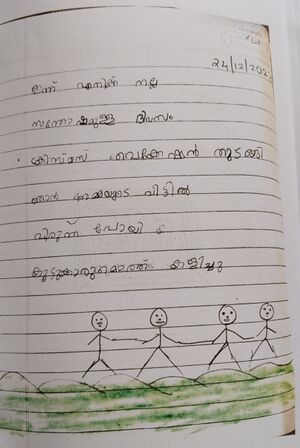 24/12/202
ഇന്ന് എനിക്ക് നല്ല
സന്തോഷമുള്ള ദിവസം
ക്രിസ്മസ് വെക്കേഷൻ തുടങ്ങി
ഞാൻ വീട്ടിൽ
വിരുന്ന് പോയി
കൂട്ടുകാരുമൊത്ത് കളിച്ചു